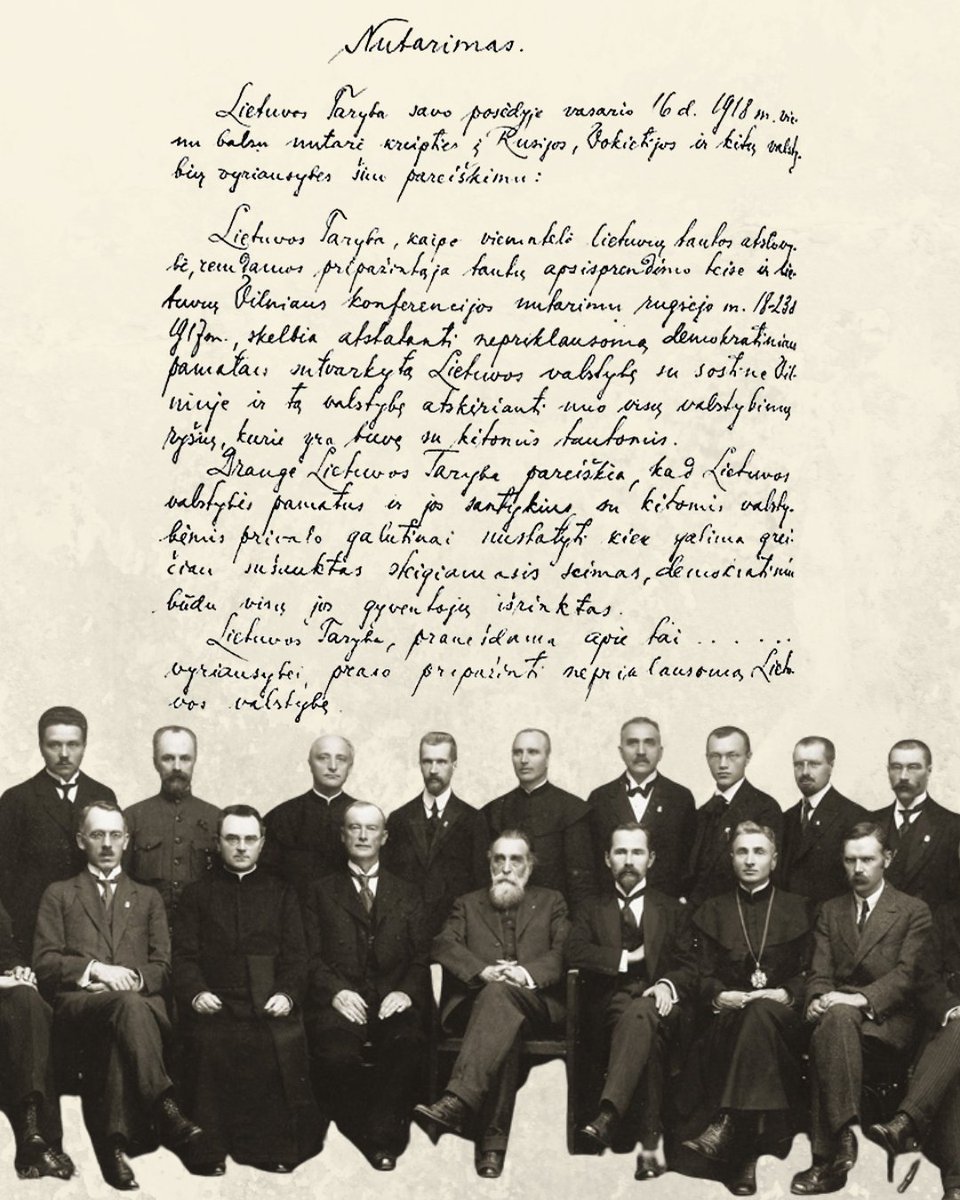 Nutarimas.
Lietuvos Taryba savo posėdyje vasario 16 d. 1918 m. vie-
nu balsu nutarė kreipties į Rusijos, Vokietijos ir kitų valsty-
bių vyriausybes šiuo pareiškimu:
Lietuvos Taryba, kaipo vienintelė lietuvių tautos atstovy-
bė, remdamos pripažintąja tautų apsisprendimo teise ir lie-
tuvių Vilniaus konferencijos nutarimu rugsėjo m. 18-23 d
1917 m., skelbia atstatanti nepriklausomą demokratiniais
pamatais sutvarkytą Lietuvos valstybę su sostine Vil-
niuje ir tą valstybę atskirianti nuo visų valstybinių
ryšių, kurie yra buvę su kitomis tautomis.
Drauge Lietuvos Taryba pareiškia, kad Lietuvos
valstybės pamatus ir jos santykius su kitomis valsty-
bėmis privalo galutinai nustatyti kiek galima grei-
čiau sušauktas steigiamasis seimas, demokratiniu
būdu visų jos gyventojų išrinktas.
Lietuvos Taryba, pranešdama apie tai ......
vyriausybei, prašo pripažinti nepriklausomą Lietu-
vos valstybę.